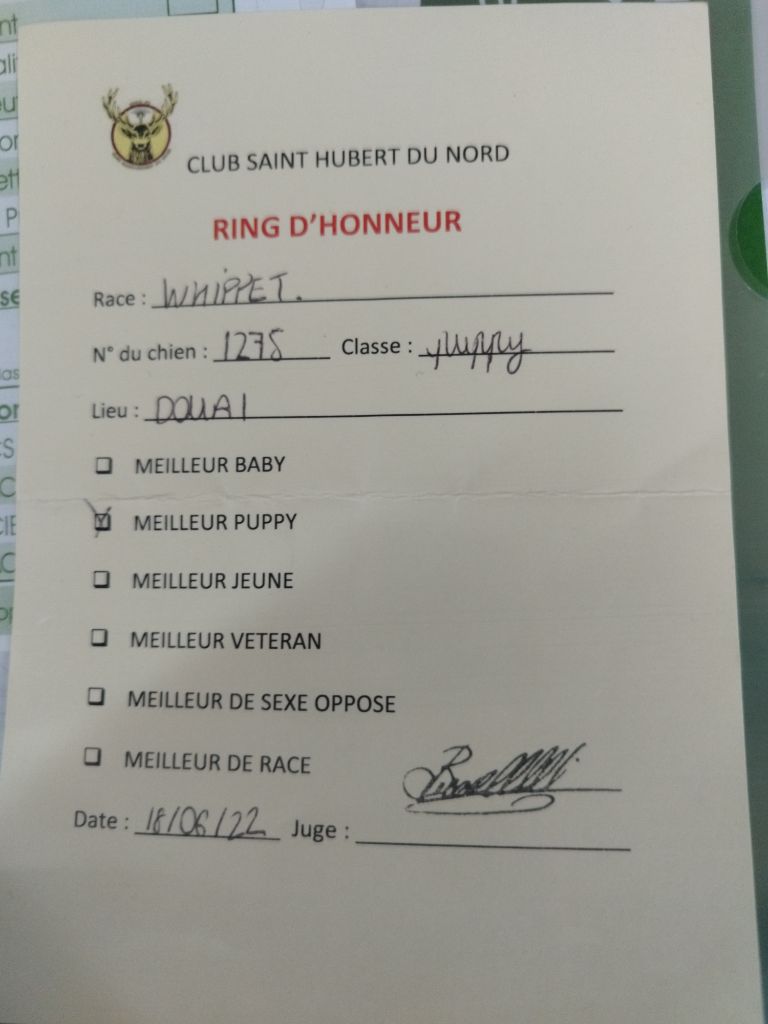 CLUB SAINT HUBERT DU NORD
RING D'HONNEUR
Race : WHIPPET.
N° du chien : 1278 Classe : puppy
Lieu : DOUAI
MEILLEUR BABY
MEILLEUR PUPPY
MEILLEUR JEUNE
MEILLEUR VETERAN
MEILLEUR DE SEXE OPPOSE
MEILLEUR DE RACE
Date : 18/06/22 Juge :